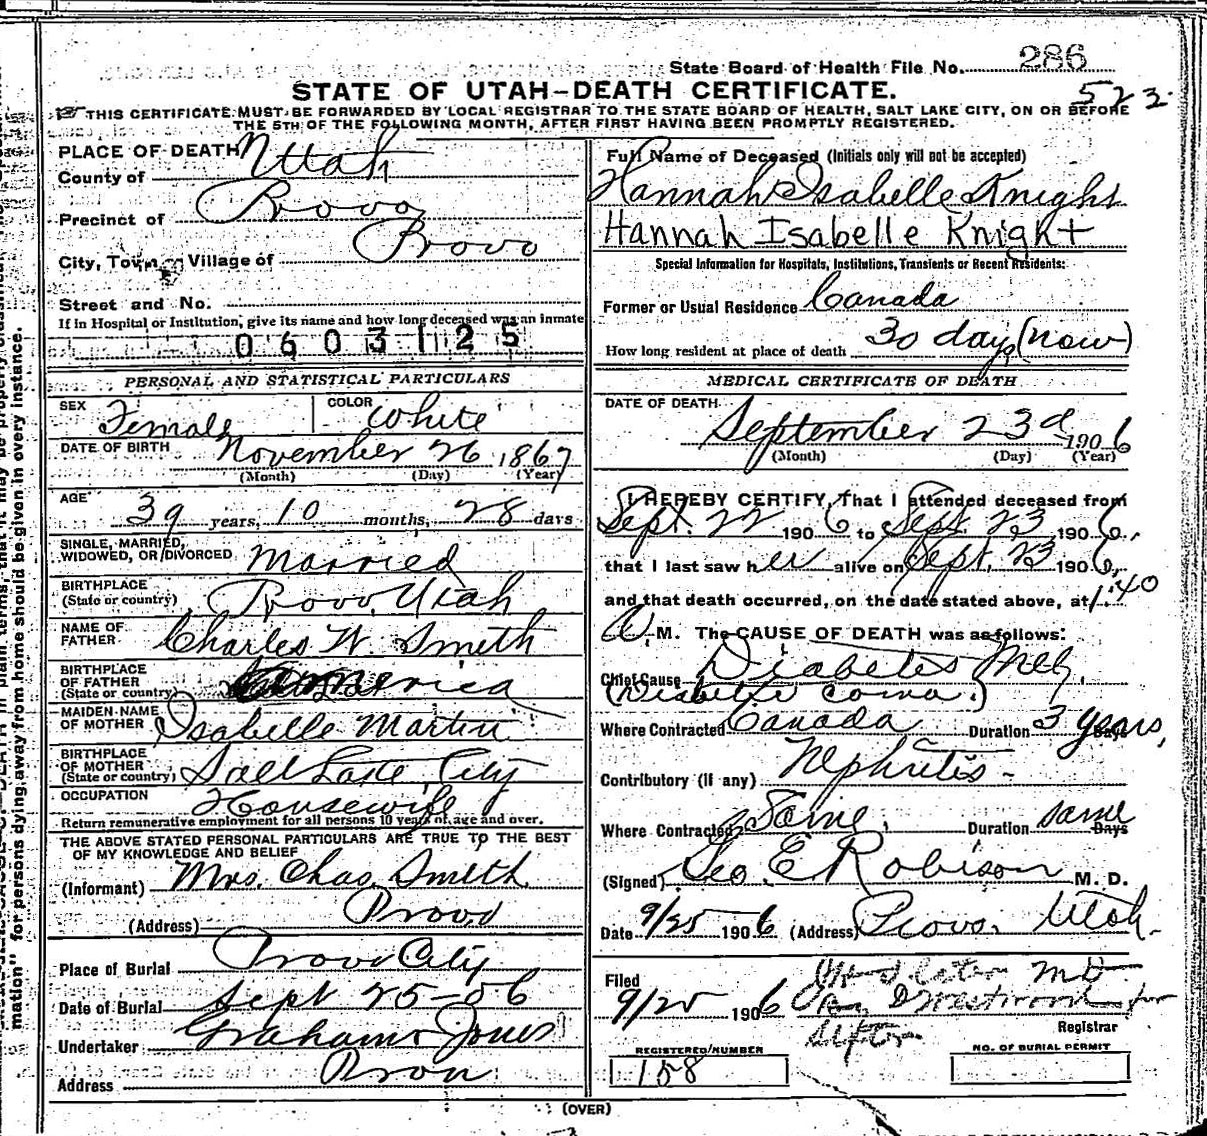 State Board of Health File No. 286
STATE OF UTAH-DEATH CERTIFICATE.
522
THIS CERTIFICATE MUST BE FORWARDED BY LOCAL REGISTRAR TO THE STATE BOARD OF HEALTH, SALT LAKE CITY, ON OR BEFORE
THE 5TH OF THE FOLLOWING MONTH, AFTER FIRST HAVING BEEN PROMPTLY REGISTERED.
PLACE OF DEATH
County of Utah
Precinct of Provo
City, Town or Village of Provo
Street and No.
If in Hospital or Institution, give its name and how long deceased was an inmate
0603125
PERSONAL AND STATISTICAL PARTICULARS
SEX Female COLOR White
DATE OF BIRTH November 26, 1867
(Month) (Day) (Year)
AGE 39 years, 10 months, 28 days
SINGLE, MARRIED,
WIDOWED, OR DIVORCED Married
BIRTHPLACE
(State or country) Provo, Utah
NAME OF
FATHER Charles W. Smith
BIRTHPLACE
OF FATHER
(State or country) America
MAIDEN NAME
OF MOTHER Isabelle Martin
BIRTHPLACE
OF MOTHER
(State or country) Salt Lake City
OCCUPATION Housewife
Return remunerative employment for all persons 10 years of age and over.
THE ABOVE STATED PERSONAL PARTICULARS ARE TRUE TO THE BEST
OF MY KNOWLEDGE AND BELIEF
(Informant) Mrs. Chas. Smith
(Address) Provo
Place of Burial Provo City
Date of Burial Sept 25-06
Undertaker Graham Jones
Address Provo
Full Name of Deceased (Initials only will not be accepted)
Hannah Isabelle Knight
Hannah Isabelle Knight
Special Information for Hospitals, Institutions, Transients or Recent Residents:
Former or Usual Residence Canada
How long resident at place of death 30 days (now)
MEDICAL CERTIFICATE OF DEATH
DATE OF DEATH
September 23d 1906
(Month) (Day) (Year)
I HEREBY CERTIFY, That I attended deceased from
Sept. 22 1906 to Sept. 23 1906,
that I last saw her alive on Sept. 23 1906,
and that death occurred, on the date stated above, at 1:40
A. M. The CAUSE OF DEATH was as follows:
Chief Cause Diabetes Mel.
(Diabetic Coma.)
Where Contracted Canada Duration 3 years,
Contributory (if any) Nephritis -
Where Contracted Same. Duration same Days
(Signed) Geo. E Robison M. D.
Date 9/25 1906 (Address) Provo, Utah.
Filed
9/25 1906
Registrar
REGISTERED NUMBER
158
NO. OF BURIAL PERMIT
(OVER)
mation" for persons dying away from home should be given in every instance.